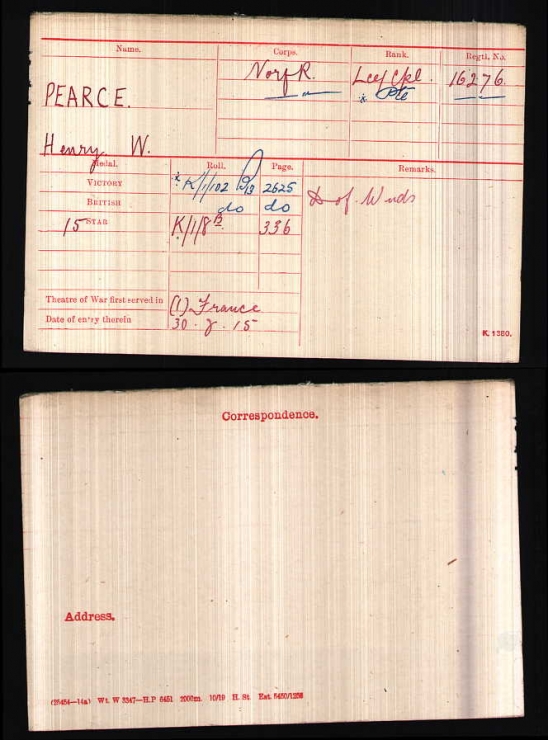 Name. Corps. Rank. Regtl. No.
PEARCE. Norf R. Lce/Cpl. 16276.
* Pte
Henry W.
Medal. Roll. Page. Remarks.
VICTORY * K/1/102 B13 2625 D of Wnds
BRITISH do do
15 STAR K/1/8 B 336
Theatre of War first served in (1) France
Date of entry therein 30. 7. 15
K. 1380.
Correspondence.
Address.
Wt. W 3347—H.P 6451 2000m. 10/19 H. St.